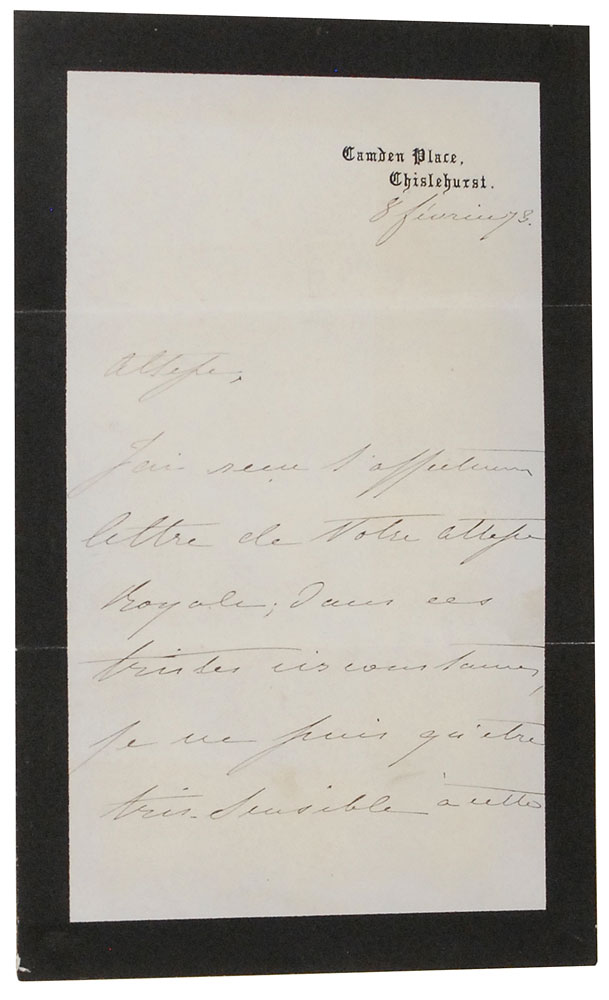 Camden Place,
Chislehurst.
8 février 73.
Altesse,
J'ai reçu l'affectueuse
lettre de Votre Altesse
Royale; dans ces
tristes circonstances,
je ne puis qu'être
très-sensible à cette